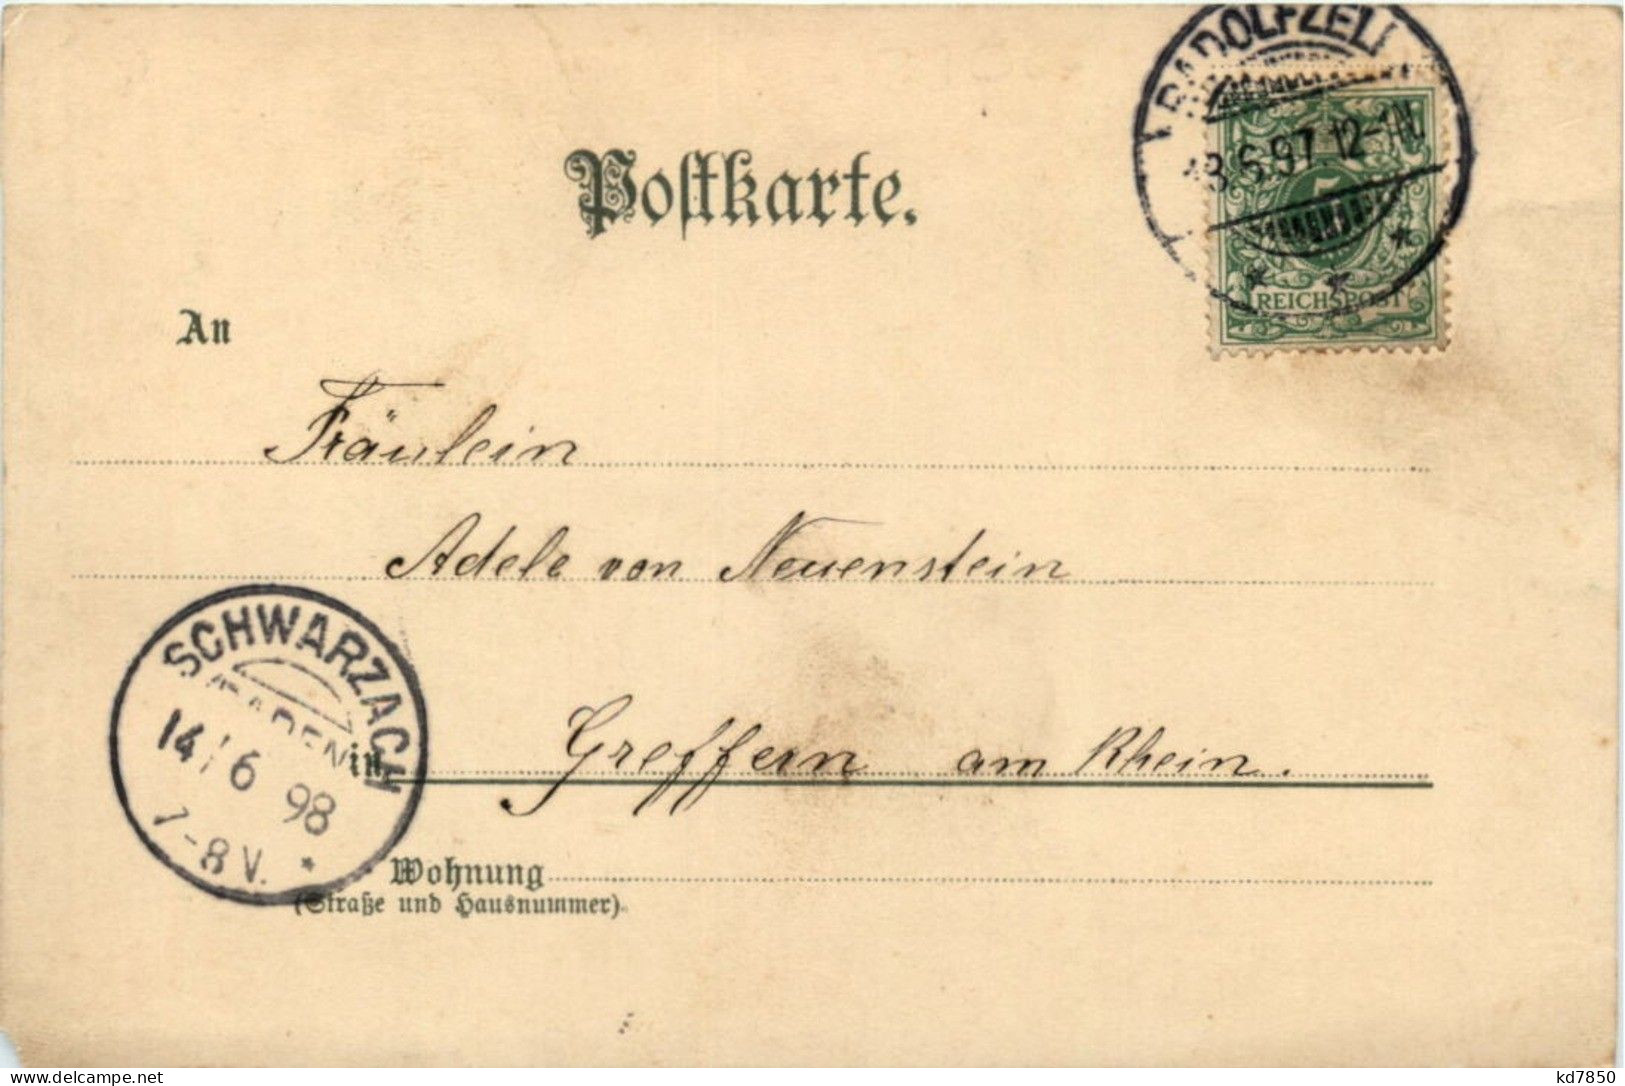 RADOLFZELL
13.6.97 12-1N.
5
REICHSPOST
Postkarte.
An
Fräulein
Adele von Neuenstein
SCHWARZACH
(BADEN)
14/6 98
7-8 V.
in Greffern am Rhein.
Wohnung
(Straße und Hausnummer).
kd7850